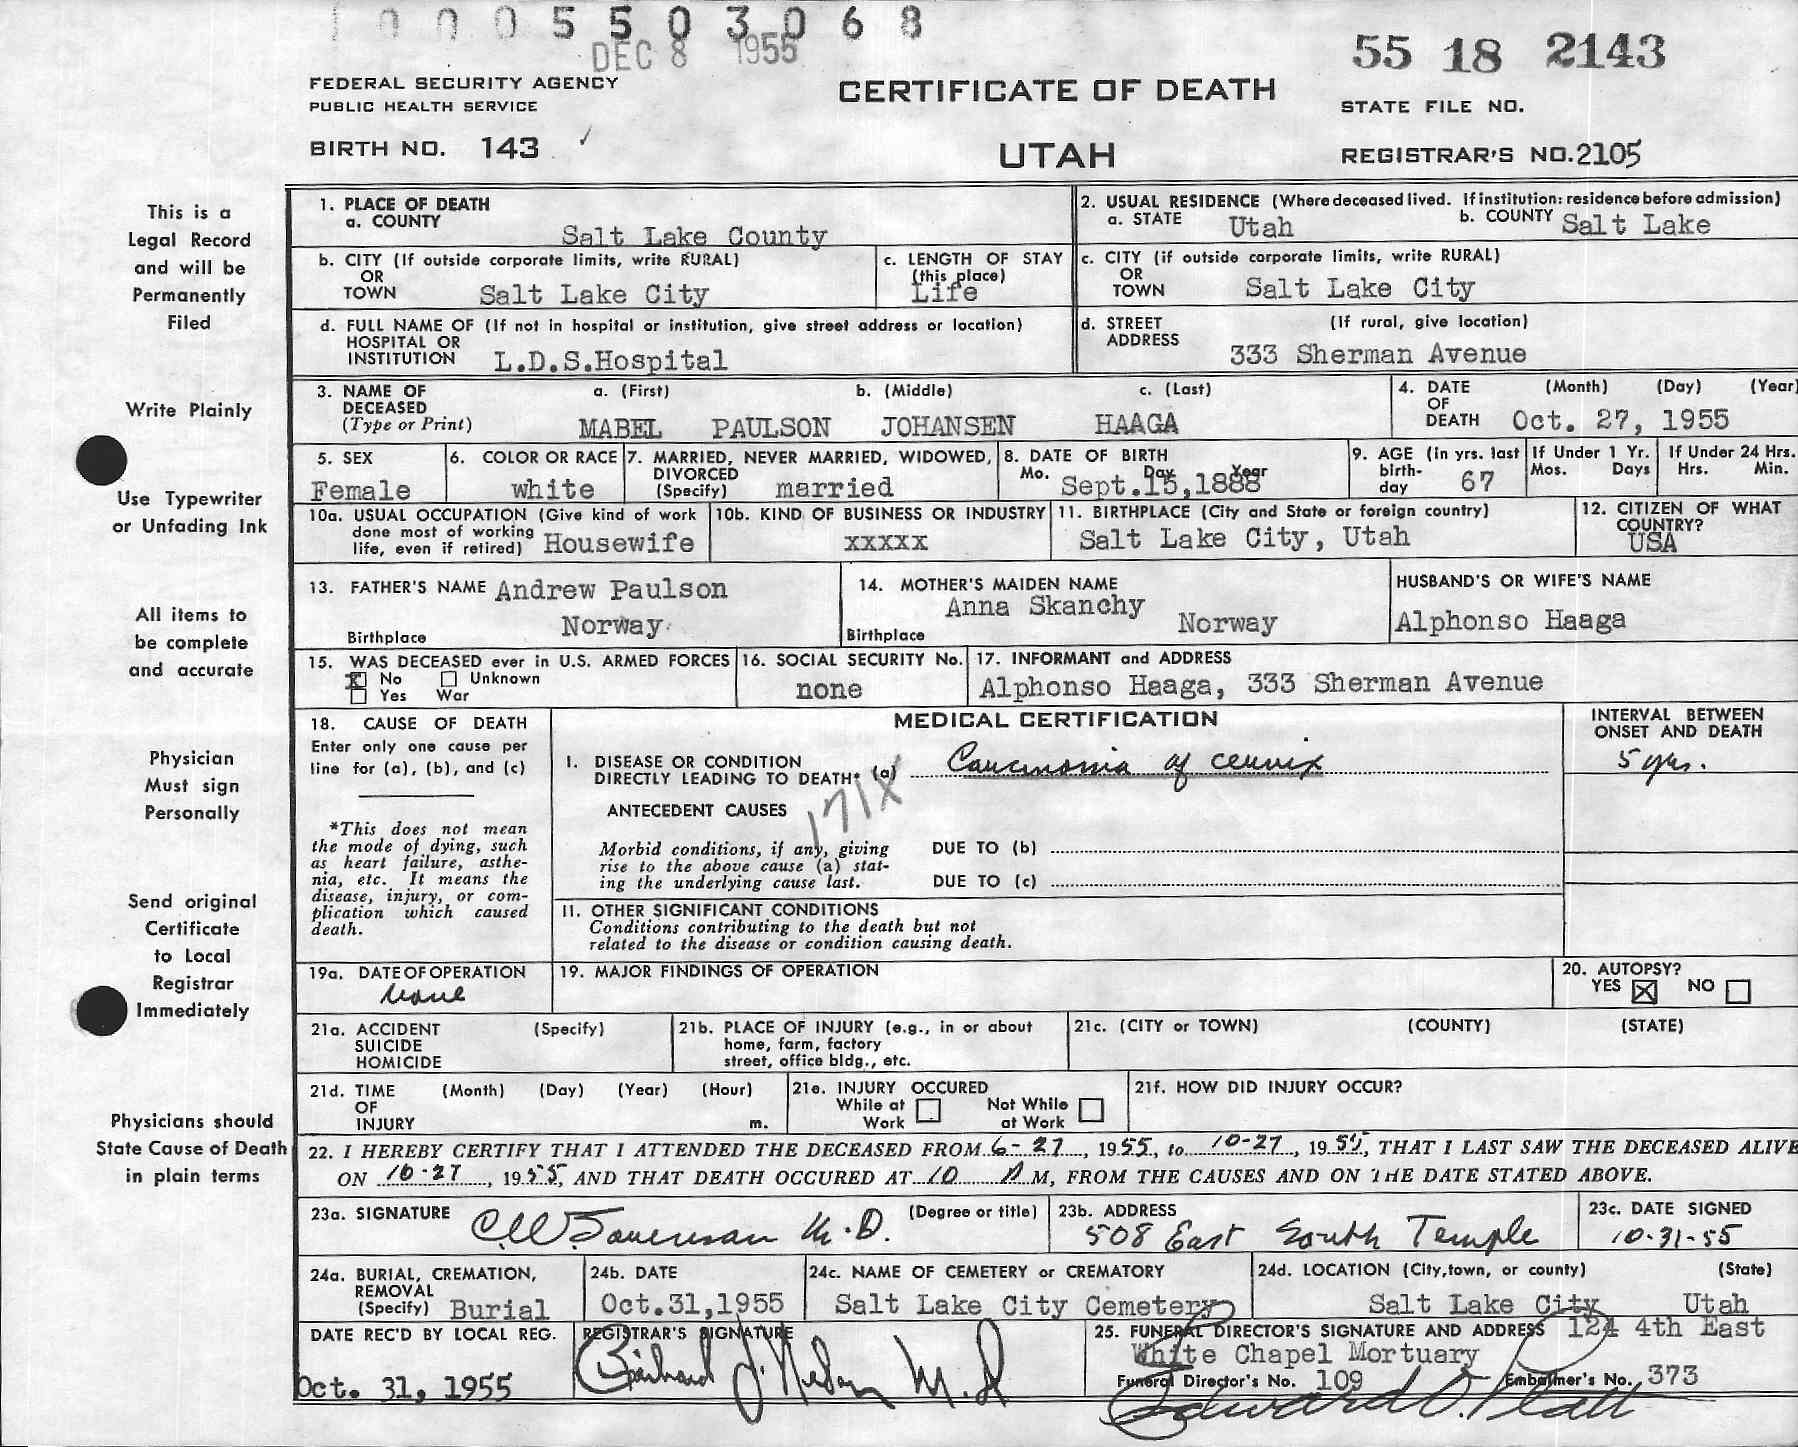 10005503068
DEC 8 1955
55 18 2143
FEDERAL SECURITY AGENCY
PUBLIC HEALTH SERVICE
CERTIFICATE OF DEATH
STATE FILE NO.
BIRTH NO. 143
UTAH
REGISTRAR'S NO. 2105
This is a
Legal Record
and will be
Permanently
Filed
Write Plainly
Use Typewriter
or Unfading Ink
All items to
be complete
and accurate
Physician
Must sign
Personally
Send original
Certificate
to Local
Registrar
Immediately
Physicians should
State Cause of Death
in plain terms
1. PLACE OF DEATH
a. COUNTY Salt Lake County
2. USUAL RESIDENCE (Where deceased lived. If institution: residence before admission)
a. STATE Utah b. COUNTY Salt Lake
b. CITY (If outside corporate limits, write RURAL)
OR
TOWN Salt Lake City
c. LENGTH OF STAY
(this place)
Life
c. CITY (if outside corporate limits, write RURAL)
OR
TOWN Salt Lake City
d. FULL NAME OF (If not in hospital or institution, give street address or location)
HOSPITAL OR
INSTITUTION L.D.S.Hospital
d. STREET (If rural, give location)
ADDRESS
333 Sherman Avenue
3. NAME OF a. (First) b. (Middle) c. (Last)
DECEASED
(Type or Print) MABEL PAULSON JOHANSEN HAAGA
4. DATE (Month) (Day) (Year)
OF
DEATH Oct. 27, 1955
5. SEX
Female
6. COLOR OR RACE
white
7. MARRIED, NEVER MARRIED, WIDOWED,
DIVORCED
(Specify) married
8. DATE OF BIRTH
Mo. Day Year
Sept.15,1888
9. AGE (in yrs. last
birth-
day 67
If Under 1 Yr.
Mos. Days
If Under 24 Hrs.
Hrs. Min.
10a. USUAL OCCUPATION (Give kind of work
done most of working
life, even if retired) Housewife
10b. KIND OF BUSINESS OR INDUSTRY
xxxxx
11. BIRTHPLACE (City and State or foreign country)
Salt Lake City, Utah
12. CITIZEN OF WHAT
COUNTRY?
USA
13. FATHER'S NAME Andrew Paulson
Birthplace Norway
14. MOTHER'S MAIDEN NAME
Anna Skanchy
Birthplace Norway
HUSBAND'S OR WIFE'S NAME
Alphonso Haaga
15. WAS DECEASED ever in U.S. ARMED FORCES
x No Unknown
Yes War
16. SOCIAL SECURITY No.
none
17. INFORMANT and ADDRESS
Alphonso Haaga, 333 Sherman Avenue
18. CAUSE OF DEATH
Enter only one cause per
line for (a), (b), and (c)
*This does not mean
the mode of dying, such
as heart failure, asthe-
nia, etc. It means the
disease, injury, or com-
plication which caused
death.
MEDICAL CERTIFICATION
INTERVAL BETWEEN
ONSET AND DEATH
I. DISEASE OR CONDITION
DIRECTLY LEADING TO DEATH* (a) Carcinonia of cervix 5 yrs.
171X
ANTECEDENT CAUSES
Morbid conditions, if any, giving
rise to the above cause (a) stat-
ing the underlying cause last.
DUE TO (b)
DUE TO (c)
11. OTHER SIGNIFICANT CONDITIONS
Conditions contributing to the death but not
related to the disease or condition causing death.
19a. DATE OF OPERATION
None
19. MAJOR FINDINGS OF OPERATION
20. AUTOPSY?
YES X NO
21a. ACCIDENT (Specify)
SUICIDE
HOMICIDE
21b. PLACE OF INJURY (e.g., in or about
home, farm, factory
street, office bldg., etc.
21c. (CITY or TOWN) (COUNTY) (STATE)
21d. TIME (Month) (Day) (Year) (Hour)
OF
INJURY m.
21e. INJURY OCCURED
While at Not While
Work at Work
21f. HOW DID INJURY OCCUR?
22. I HEREBY CERTIFY THAT I ATTENDED THE DECEASED FROM 6-27, 1955, to 10-27, 1955, THAT I LAST SAW THE DECEASED ALIVE
ON 10-27, 1955, AND THAT DEATH OCCURED AT 10 M, FROM THE CAUSES AND ON THE DATE STATED ABOVE.
23a. SIGNATURE M.D. (Degree or title)
23b. ADDRESS
508 East South Temple
23c. DATE SIGNED
10-31-55
24a. BURIAL, CREMATION,
REMOVAL
(Specify) Burial
24b. DATE
Oct.31,1955
24c. NAME OF CEMETERY or CREMATORY
Salt Lake City Cemetery
24d. LOCATION (City,town, or county) (State)
Salt Lake City Utah
DATE REC'D BY LOCAL REG.
Oct. 31, 1955
REGISTRAR'S SIGNATURE
M.D
25. FUNERAL DIRECTOR'S SIGNATURE AND ADDRESS 124 4th East
White Chapel Mortuary
Funeral Director's No. 109 Embalmer's No. 373
Edward O. Platt